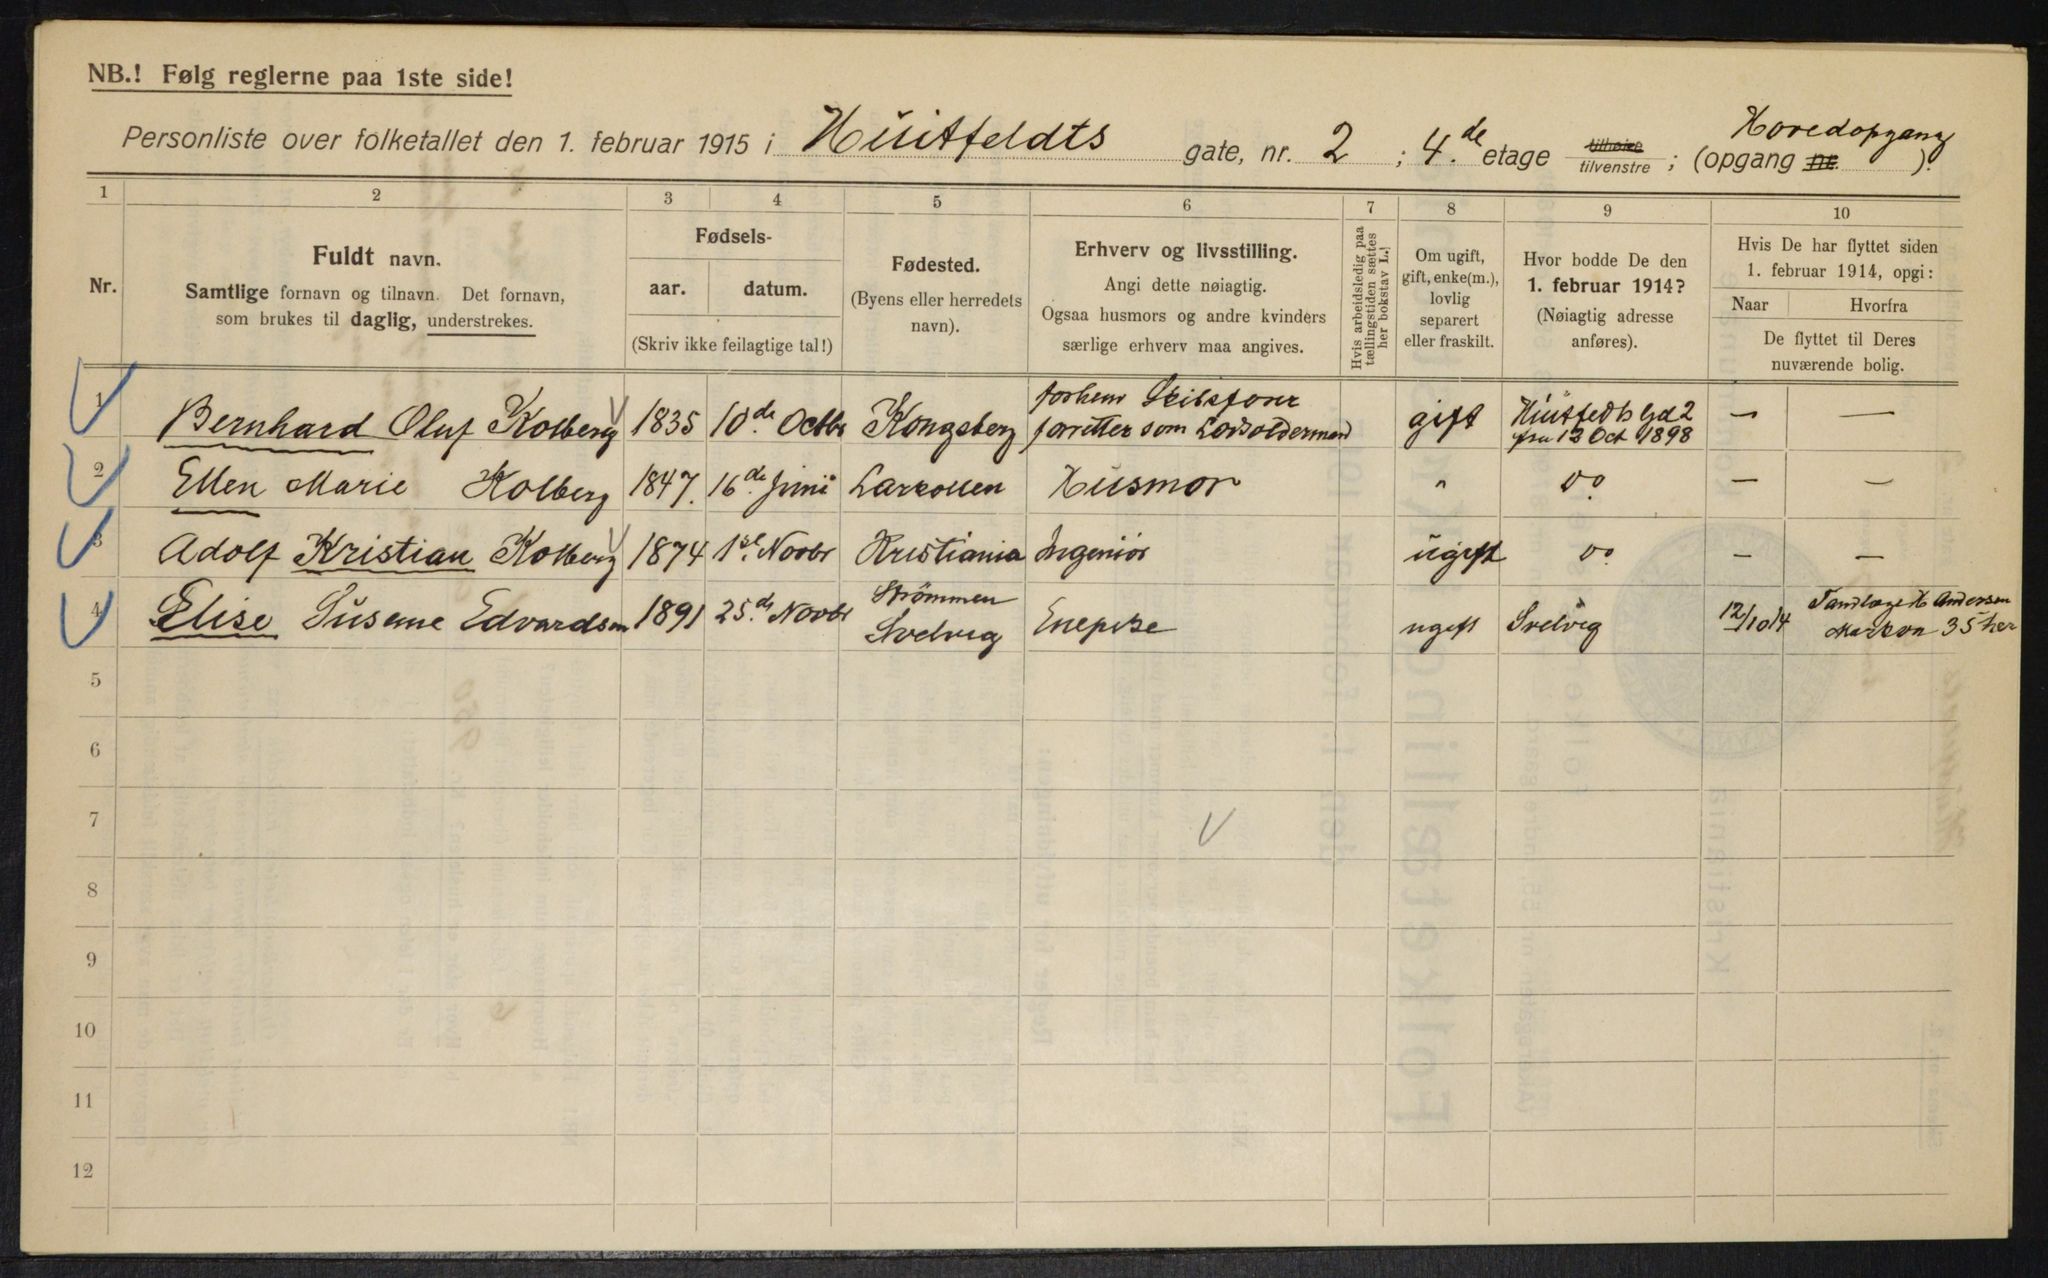 NB.! Følg reglerne paa 1ste side!
Personliste over folketallet den 1. februar 1915 i Huitfeldts gate, nr. 2 ; 4.de etage tilhøire tilvenstre ; (opgang nr. Hovedopgang).
1 2 3 4 5 6 7 8 9 10
Nr.
Fuldt navn.
Samtlige fornavn og tilnavn. Det fornavn,
som brukes til daglig, understrekes.
Fødsels-
aar. datum.
(Skriv ikke feilagtige tal!)
Fødested.
(Byens eller herredets
navn).
Erhverv og livsstilling.
Angi dette nøiagtig.
Ogsaa husmors og andre kvinders
særlige erhverv maa angives.
Hvis arbeidsledig paa
tællingstiden sættes
her bokstav L.
Om ugift,
gift, enke(m.),
lovlig
separert
eller fraskilt.
Hvor bodde De den
1. februar 1914?
(Nøiagtig adresse
anføres).
Hvis De har flyttet siden
1. februar 1914, opgi:
Naar Hvorfra
De flyttet til Deres
nuværende bolig.
1 Bernhard Oluf Kolberg 1835 10de Octbr Kongsberg forhenv Skibsfører forretter som Lodsoldermand gift Huitfedts Gd 2 fra 13 Oct 1898 — —
2 Ellen Marie Kolberg 1847. 16de Juni Larkollen Husmor " do — —
3 Adolf Kristian Kolberg 1874 1st. Novbr Kristiania Ingeniør ugift do — —
4 Elise Susene Edvardsen 1891 25de Novbr Strømmen Svelvig Enepike ugift Svelvig 12/10 14 Tandlæge H Andersen Markvn 35 her
5
6
7
8
9
10
11
12